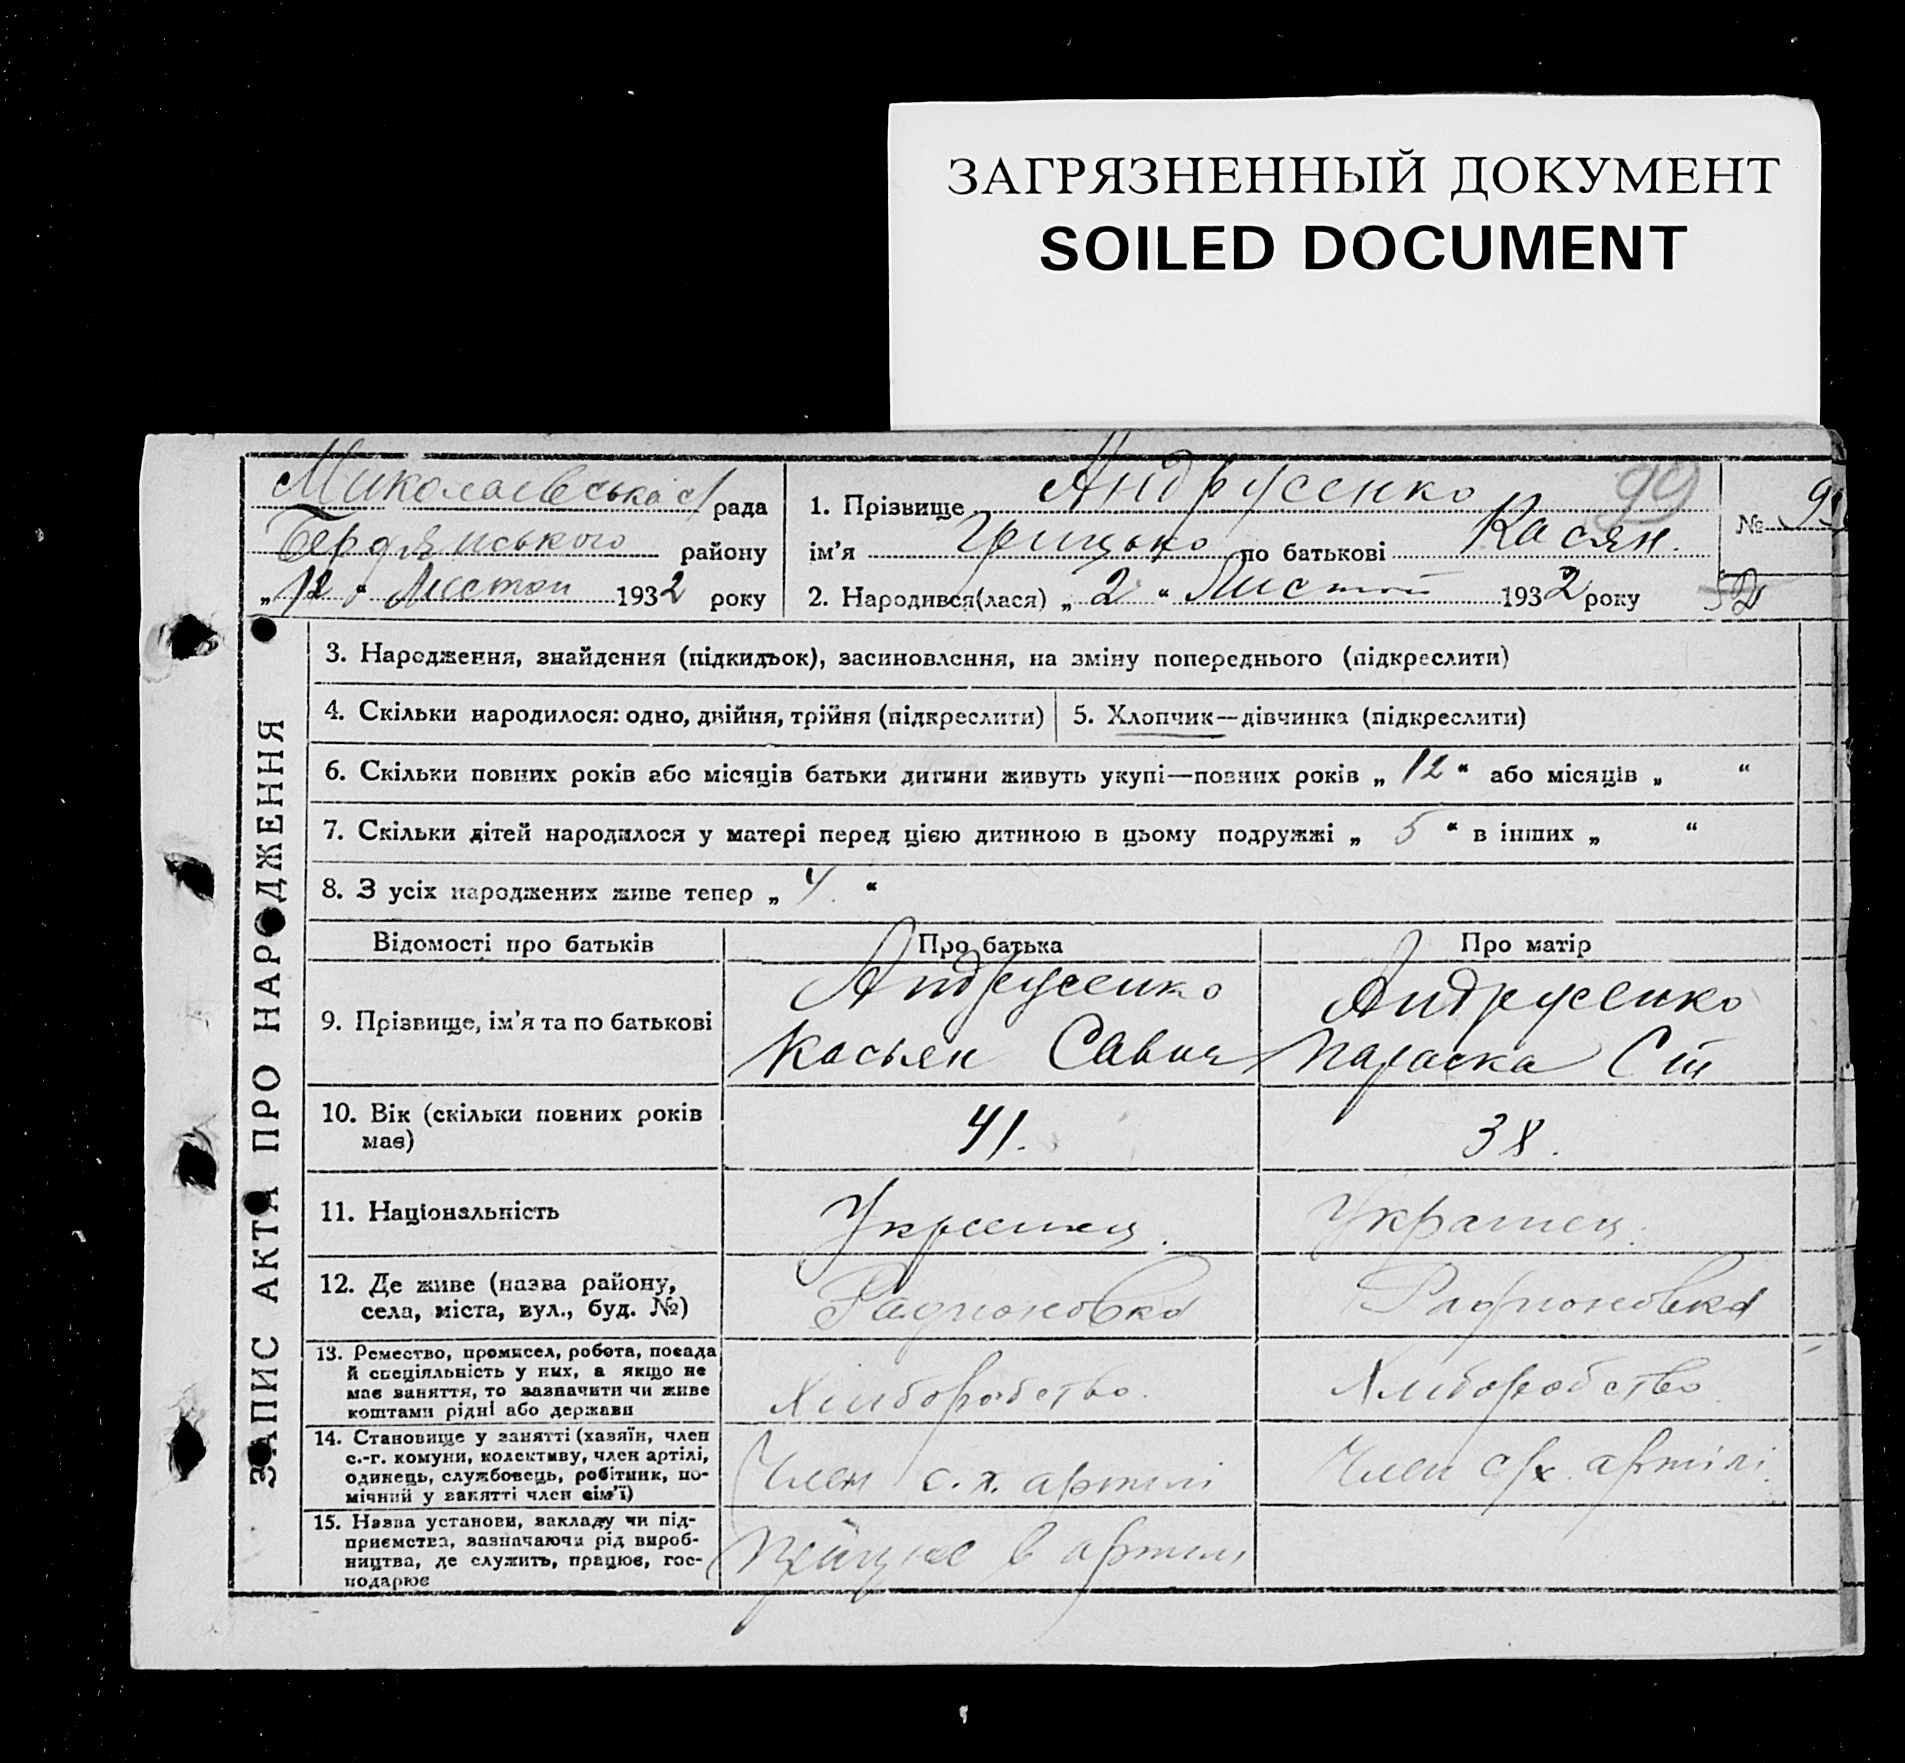 ЗАГРЯЗНЕННЫЙ ДОКУМЕНТ
SOILED DOCUMENT
Миколаївська с/ рада
Бердянського району
„12“ Листоп 1932 року
1. Прізвище Андрусенко
ім’я Грицько по батькові Касян.
2. Народився(лася) „2“ Листоп 1932 року
99
№
ЗАПИС АКТА ПРО НАРОДЖЕННЯ
3. Народження, знайдення (підкидьок), засиновлення, на зміну попереднього (підкреслити)
4. Скільки народилося: одно, двійня, трійня (підкреслити)
5. Хлопчик—дівчинка (підкреслити)
6. Скільки повних років або місяців батьки дитини живуть укупі—повних років „12“ або місяців „ “
7. Скільки дітей народилося у матері перед цією дитиною в цьому подружжі „5“ в інших „ “
8. З усіх народжених живе тепер „4.“
Відомості про батьків
Про батька
Про матір
9. Прізвище, ім’я та по батькові
Андрусенко
Касьян Савич
Андрусенко
Параска Ст
10. Вік (скільки повних років
має)
41.
38.
11. Національність
Українец.
Українец.
12. Де живе (назва району,
села, міста, вул., буд. №)
Радионовка
Радионовка
13. Ремество, промисел, робота, посада
й спеціяльність у них, а якщо не
має заняття, то зазначити чи живе
коштами рідні або держави
Хлиборобство.
Хлиборобство
14. Становище у занятті (хазяїн, член
с.-г. комуни, колективу, член артілі,
одинець, службовець, робітник, по-
мічний у занятті член сім’ї)
Член с.х. артилі
Член с/х. артілі
15. Назва установи, закладу чи під-
приємства, зазначаючи рід вироб-
ництва, де служить, працює, гос-
подарює
Працює в артилі